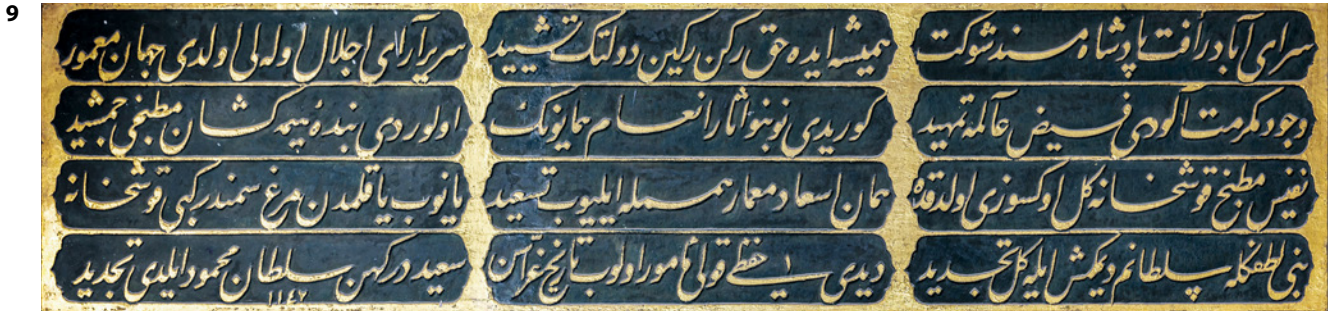 9
سرای آباد رأفت پادشاه مسند شوکت همیشه ایده حق رکن رکین دولتک تشیید سریر آرای اجلال اوله لی اولدی جهان معمور
وجود مکرمت آلودی فیض عالمه تمهید کوریدی نوبنو آثار انعام همایونک اولوردی بندهٔ هیمه کشان مطبخی جمشید
نفیس مطبخ قوشخانه کل اولدقده همان معمار ایلیوب تسعید یانوب یاقلمدن مرغ سمندر کبی قوشخانه
بنی لطفکله سلطانم ایله کل تجدید دیدی حفظی قولی مأمور اولوب تاریخ غراسن سلطان محمود ایلدی تجدید
۱۱۴۲